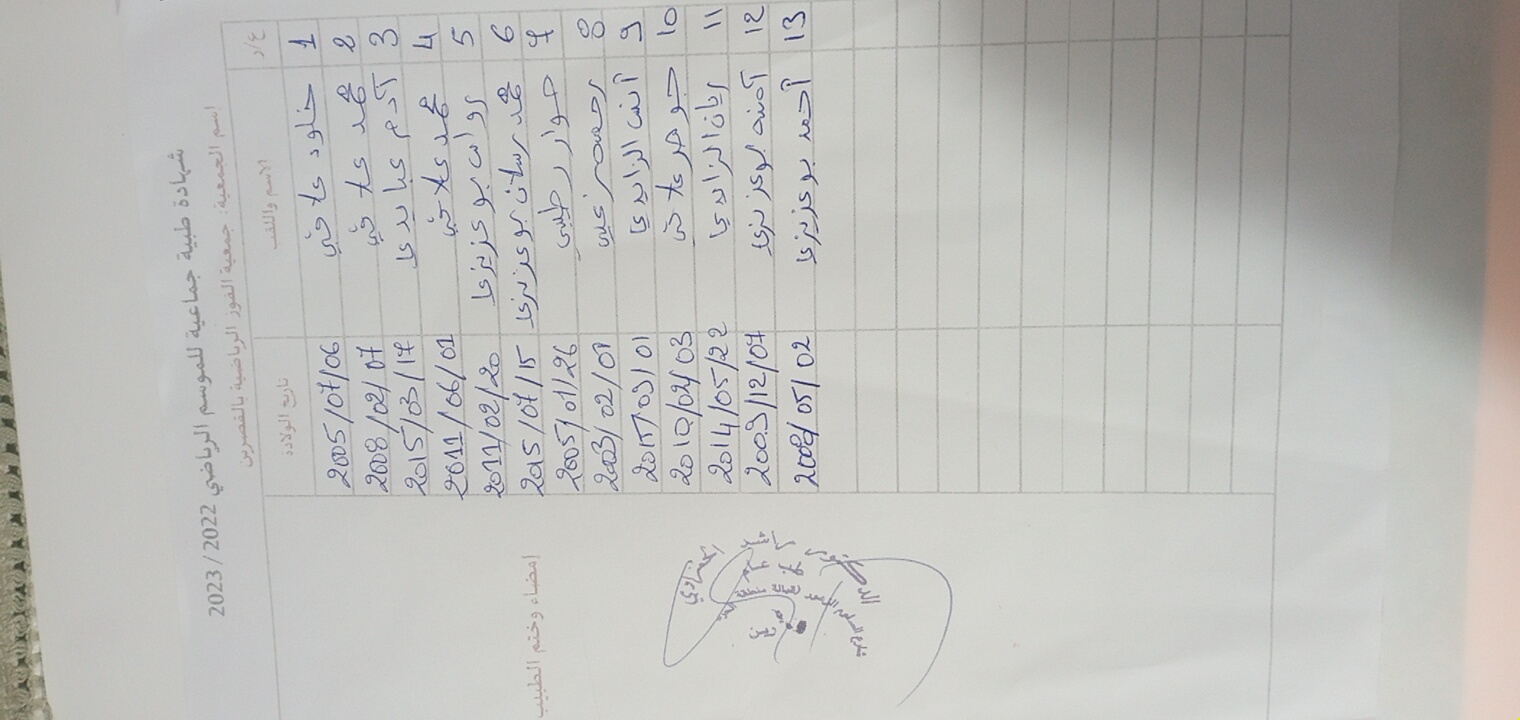 شهادة طبية جماعية للموسم الرياضي 2022 / 2023
اسم الجمعية: جمعية الفوز الرياضية بالقصرين
ع/د الاسم واللقب تاريخ الولادة امضاء وختم الطبيب
1 خلود علاقي 2005/07/06
2 محمد علاقي 2008/02/07
3 آدم عبايدي 2015/03/17
4 محمد علاقي 2011/06/01
5 روان بوعزيزي 2011/02/20
6 محمد رسلان بوعزيزي 2015/07/15
7 حوار رطيبي 2005/01/26
8 2003/02/01
9 أنس الزايدي 2015/03/01
10 جوهر علاقي 2010/02/03
11 ريان الزايدي 2014/05/22
12 آمنة بوعزيزي 2009/12/07
13 أحمد بوعزيزي 2008/05/02